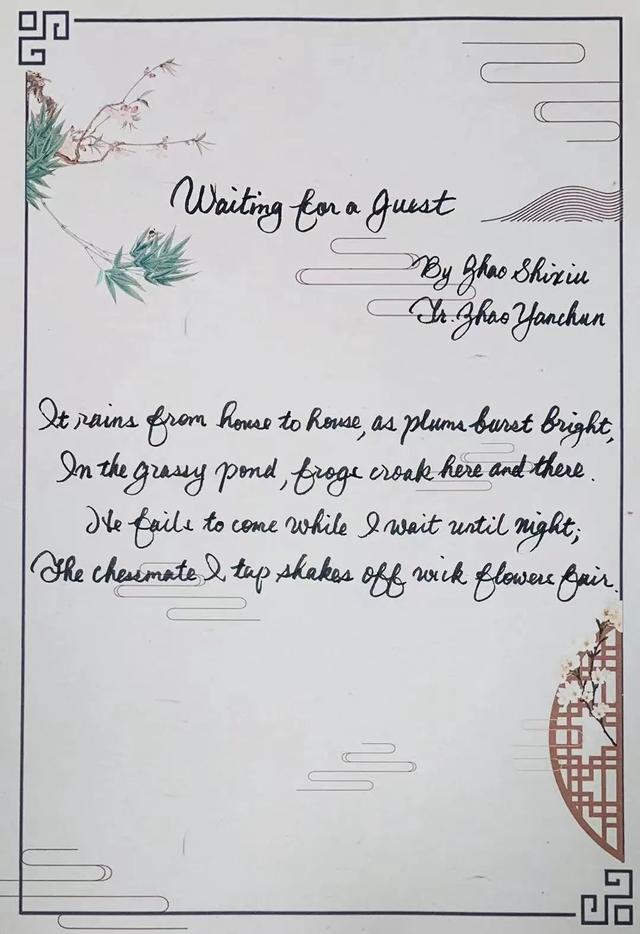 Waiting for a Guest
By Zhao Shixiu
Tr. Zhao Yanchun
It rains from house to house, as plums burst bright,
In the grassy pond, frogs croak here and there.
He fails to come while I wait until night;
The chessmate I tap shakes off wick flowers fair.